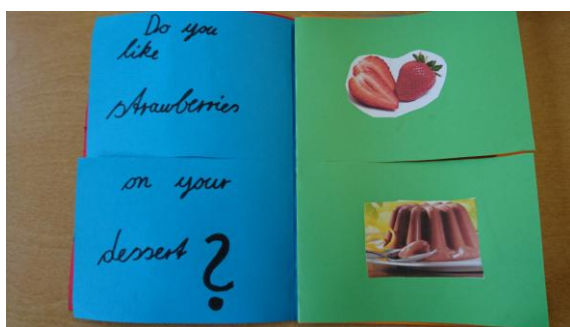 Do you
like
strawberries
on your
dessert ?